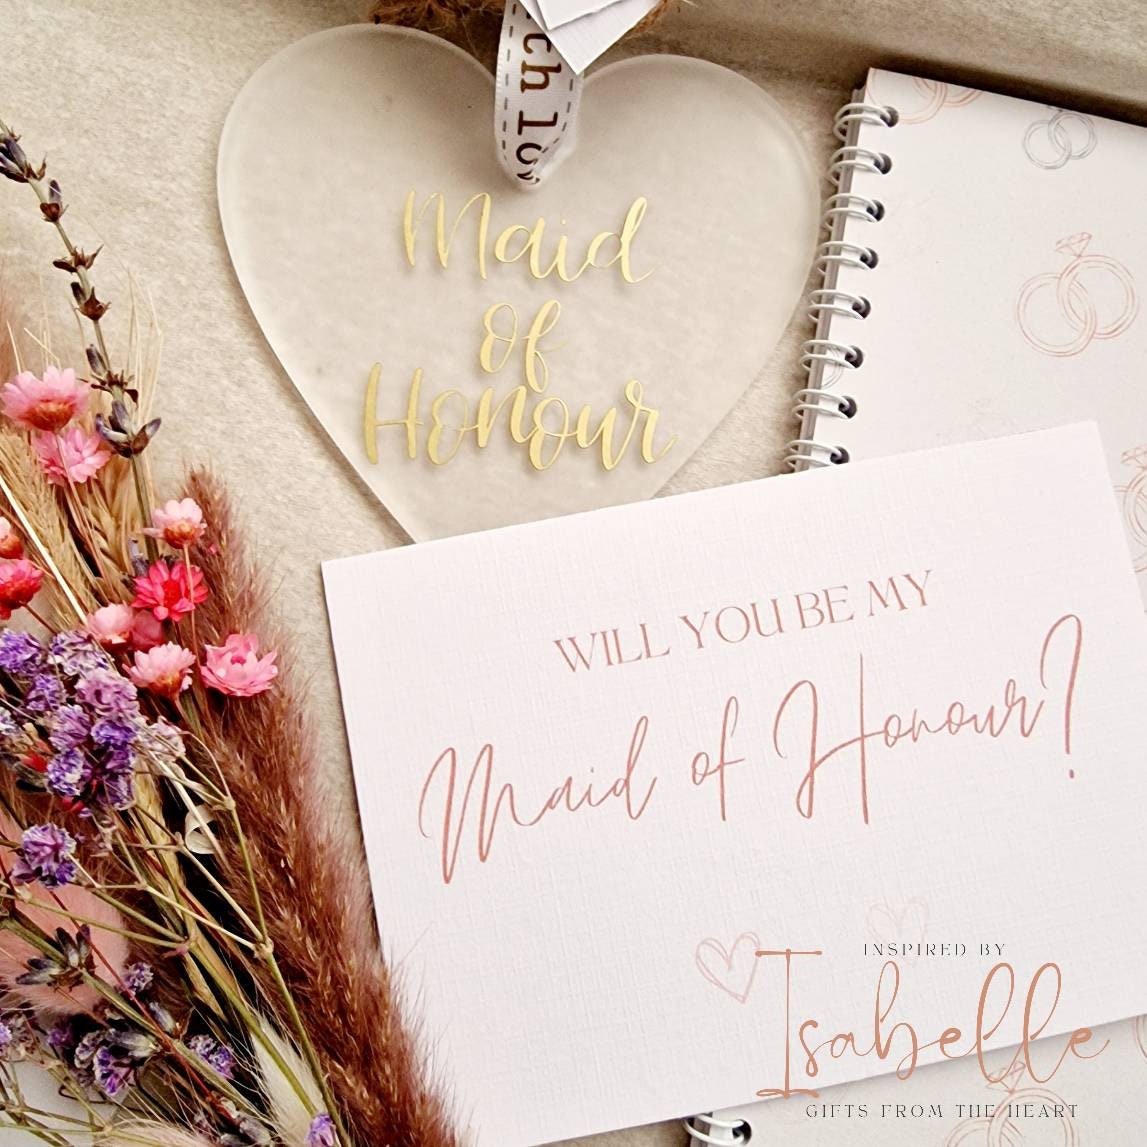 ch lo
Maid
of
Honour
WILL YOU BE MY
Maid of Honour?
INSPIRED BY
Isabelle
GIFTS FROM THE HEART